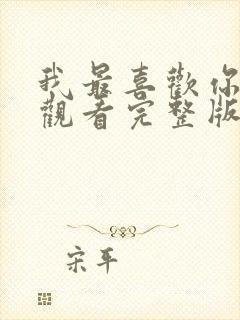 我最喜歡你
觀看完整版
宋平